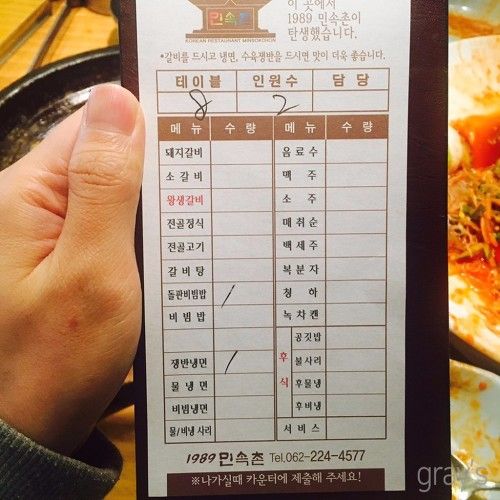 민속촌
KOREAN RESTAURANT MINSOKCHON
이 곳에서
1989 민속촌이
탄생했습니다.
*갈비를 드시고 냉면, 수육쟁반을 드시면 맛이 더욱 좋습니다.
테이블 인원수 담당
8 2
메뉴 수량 메뉴 수량
돼지갈비 음료수
소갈비 맥주
왕생갈비 소주
전골정식 매취순
전골고기 백세주
갈비탕 복분자
돌판비빔밥 / 청하
비빔밥 녹차캔
공깃밥
쟁반냉면 / 후식 불사리
물냉면 후물냉
비빔냉면 후비냉
물/비냉사리 서비스
1989 민속촌 Tel.062-224-4577
※나가실때 카운터에 제출해 주세요!
gray's